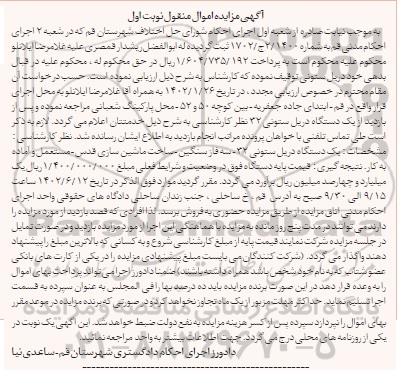 آگهی مزایده اموال منقول نوبت اول
به موجب نیابت صادره از شعبه اول اجرای احکام شورای حل اختلاف شهرستان قم که در شعبه ۲ اجرای
احکام مدنی قم به شماره ۲/۱۴۰۰ج/۱۷۰۲ ثبت گردیده له ابوالفضل ریشدار قمصری علیه غلامرضا ایلانلو
محکوم علیه محکوم است به پرداخت ۱/۶۰۴/۷۳۵/۱۹۲ ریال در حق محکوم له ، محکوم علیه در قبال
بدهی خود دریل ستونی توقیف نموده که کارشناس به شرح ذیل ارزیابی نموده است. حسب درخواست آن
مقام محترم در خصوص ارزیابی مجدد ، در تاریخ ۱۴۰۲/۱/۲۶ به همراه آقا غلامرضا ایلانلو به محل اجرای
قرار واقع در قم - ابتدای جاده جعفریه - بین کوچه ۵۰ و ۵۲ - محل پارکینگ شعبانی مراجعه نموده و پس از
بازدید از یک دستگاه دریل ستونی ۳۲ نظر کارشناسی به شرح ذیل خدمتتان اعلام می گردد. لازم به ذکر
است طی تماس تلفنی با خواهان پرونده مراتب انجام بازدید به اطلاع ایشان رسانده شد. نظر کارشناسی :
مشخصات : یک دستگاه دریل ستونی ۳۲ - سه فاز سنگین - ساخت ماشین سازی قدس - مستعمل و آماده
به کار. نتیجه گیری : قیمت پایه دستگاه فوق در وضعیت و شرایط فعلی مبلغ ۱/۴۰۰/۰۰۰/۰۰۰ ریال یک
میلیارد و چهارصد میلیون ریال برآورد می گردد. مقرر گردید موارد فوق الذکر در تاریخ ۱۴۰۲/۶/۱۲ ساعت
۹/۱۵ الی ۹/۳۰ صبح به آدرس قم - خ ساحلی ، جنب زندان ساحلی دادگاه های حقوقی واحد اجرای
احکام مدنی اتاق مزایده از طریق مزایده حضوری به فروش برسد. لذا افرادی که قصد بازدید از مورد مزایده را
دارند می توانند در مدت پنج روز مانده به مزایده با هماهنگی این اجرا از مورد مزایده بازدید و در صورت تمایل
در جلسه مزایده شرکت نمایند قیمت پایه از مبلغ کارشناسی شروع و به کسانی که بالاترین مبلغ را پیشنهاد
دهند واگذار می گردد. (شرکت کنندگان می بایست مبلغ پیشنهادی مزایده را در یکی از کارت های بانکی
عضو شتاب که به نام خود شخص باشد همراه داشته باشید) ضمنا دادورز اجرا می تواند پرداخت بهای اموال
را به وعده قرار دهد در این صورت برنده مزایده باید ده درصد بها را فی المجلس به عنوان سپرده به قسمت
اجرا تسلیم نماید. حداکثر مهلت مزبور از یک ماه تجاوز نخواهد کرد و در صورتی که برنده مزایده در موعد مقرر
بهای اموال را نپردازد سپرده پس از کسر هزینه مزایده به نفع دولت ضبط خواهد شد. این آگهی یک نوبت در
یکی از روزنامه های محلی درج می گردد. جهت اطلاعات بیشتر به واحد مراجعه نمائید.
دادورز اجرای احکام دادگستری شهرستان قم - ساعدی نیا